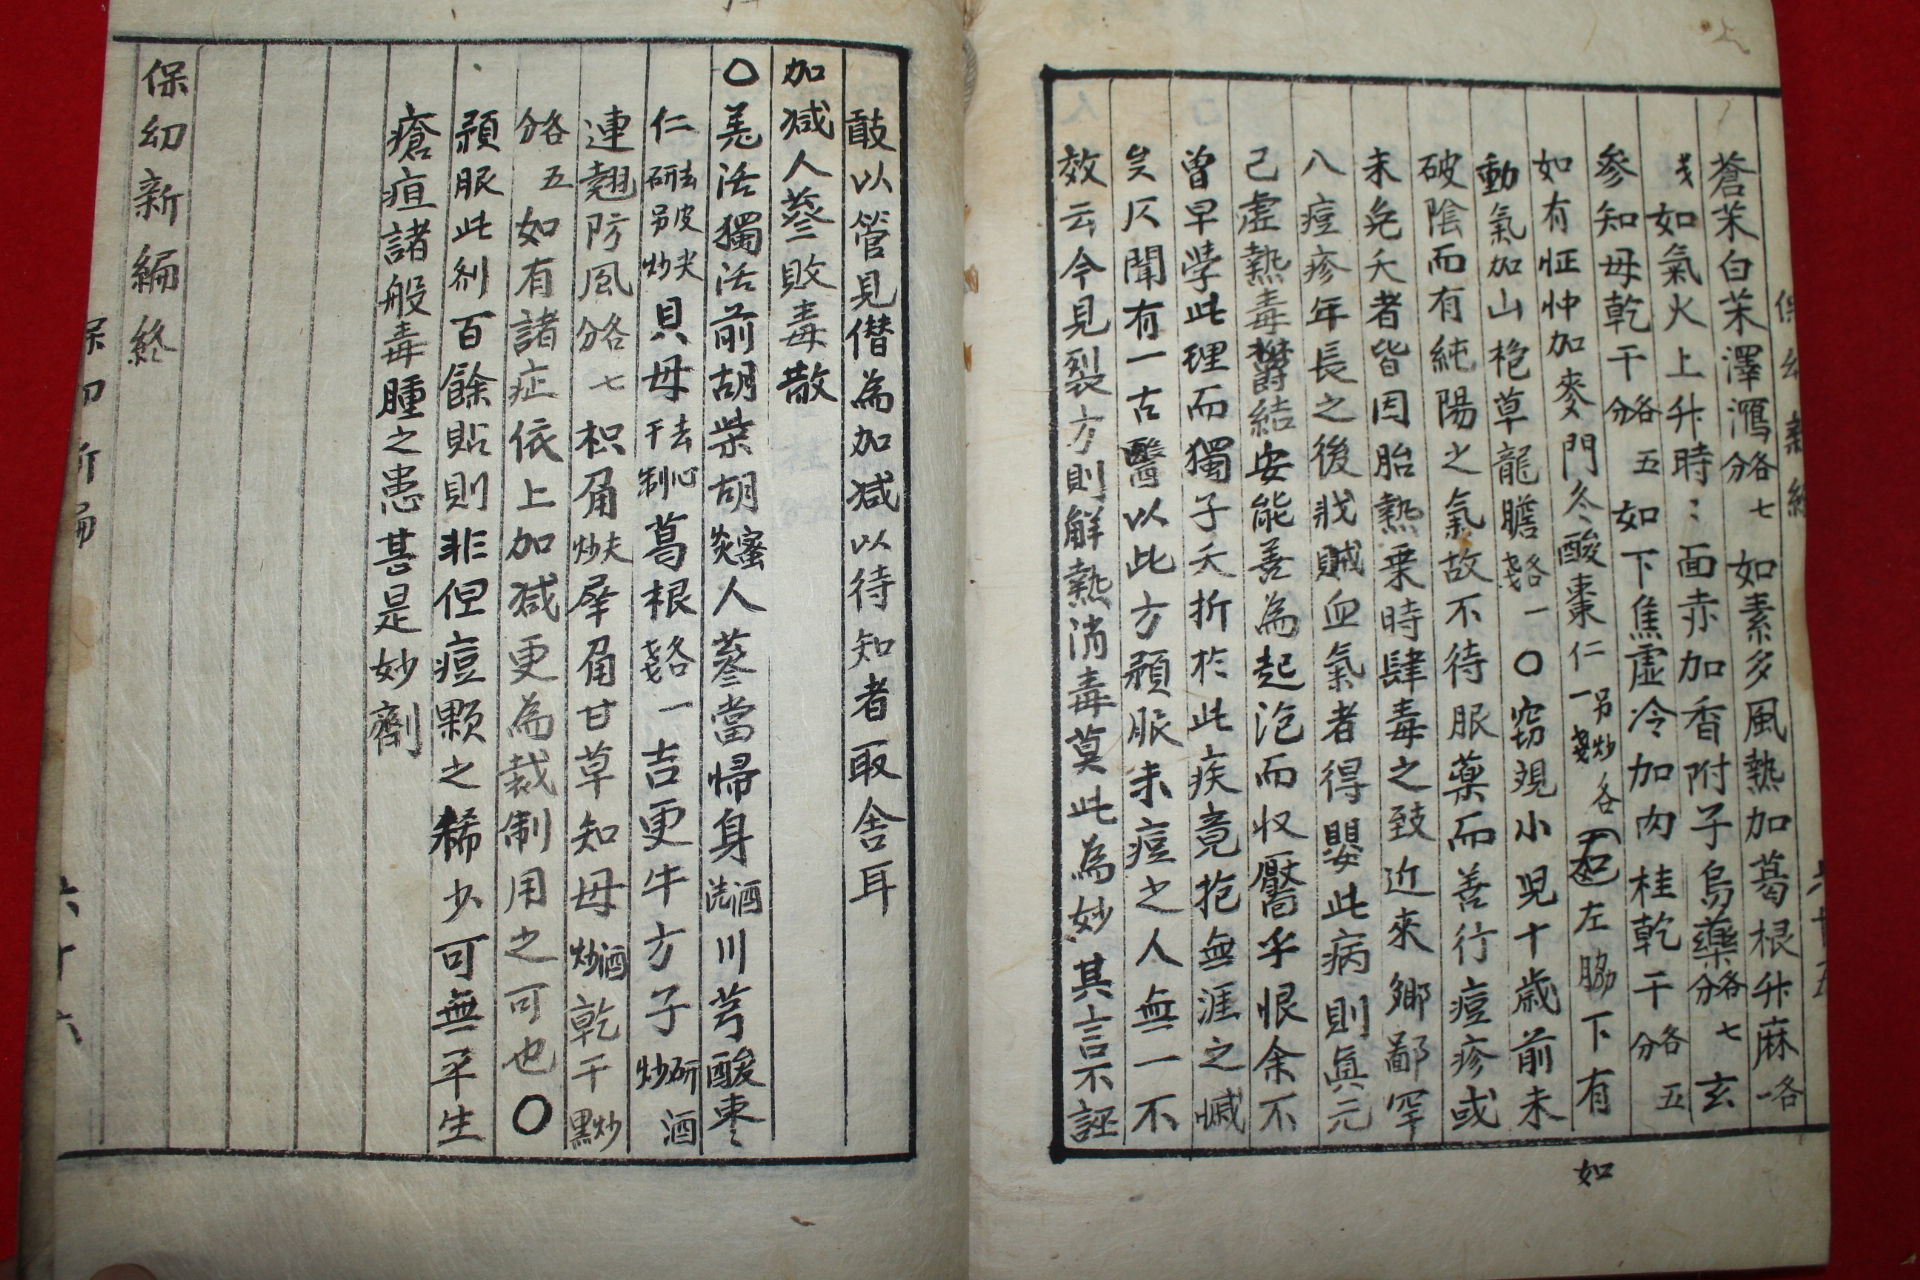 蒼朮白朮澤瀉各七分 如素多風熱加葛根升麻各一
戔如氣火上升時〻面赤加香附子烏藥各七分 玄
參知母乾干各五分 如下焦虛冷加肉桂乾干各五分
如有怔忡加麥門冬酸棗仁另炒各一戔 如左脇下有
動氣加山梔草龍膽各一戔 ○窃覌小兒十歲前未
破陰而有純陽之氣故不待服藥而善行痘疹或
未免夭者皆因胎熱乗時肆毒之致近來鄉鄙罕
八痘疹年長之後戕賊血氣者得嬰此病則眞元
已虛熱毒欝結安能善為起泡而収靨乎恨余不
曾早學此理而獨子夭折於此疾竟抱無涯之慽
矣仄聞有一古醫以此方預服未痘之人無一不
效云今見裂方則解熱消毒莫此為妙其言不誣
敢以管見僭為加减以待知者取舍耳
加减人蔘敗毒散
○羌活獨活前胡柴胡蜜炙人蔘當帰身酒洗川芎酸棗
仁去皮尖研另炒貝母去心干制葛根各一戔吉更牛方子研酒炒
連翹防風各七分枳角夫炒犀角甘草知母酒炒乾干炒黑
各五分 如有諸症依上加减更為裁制用之可也○
預服此剂百餘貼則非但痘顆之稀少可無平生
瘡疽諸般毒腫之患甚是妙劑
保幼新編終
保幼新編
六十六